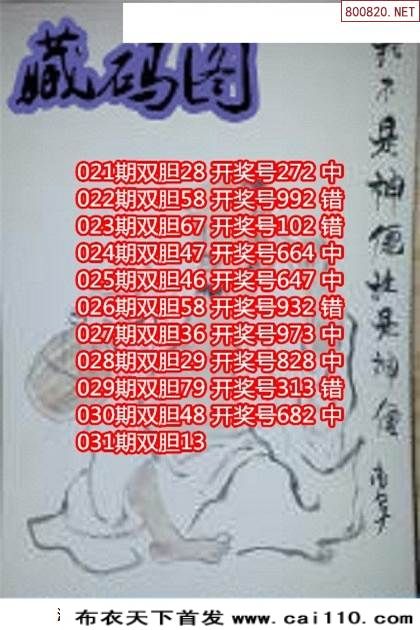 800820.NET
藏码图
021期双胆28 开奖号272 中
022期双胆58 开奖号992 错
023期双胆67 开奖号102 错
024期双胆47 开奖号664 中
025期双胆46 开奖号647 中
026期双胆58 开奖号932 错
027期双胆36 开奖号973 中
028期双胆29 开奖号828 中
029期双胆79 开奖号313 错
030期双胆48 开奖号682 中
031期双胆13
不是神仙胜是神仙
布衣天下首发 www.cai110.com